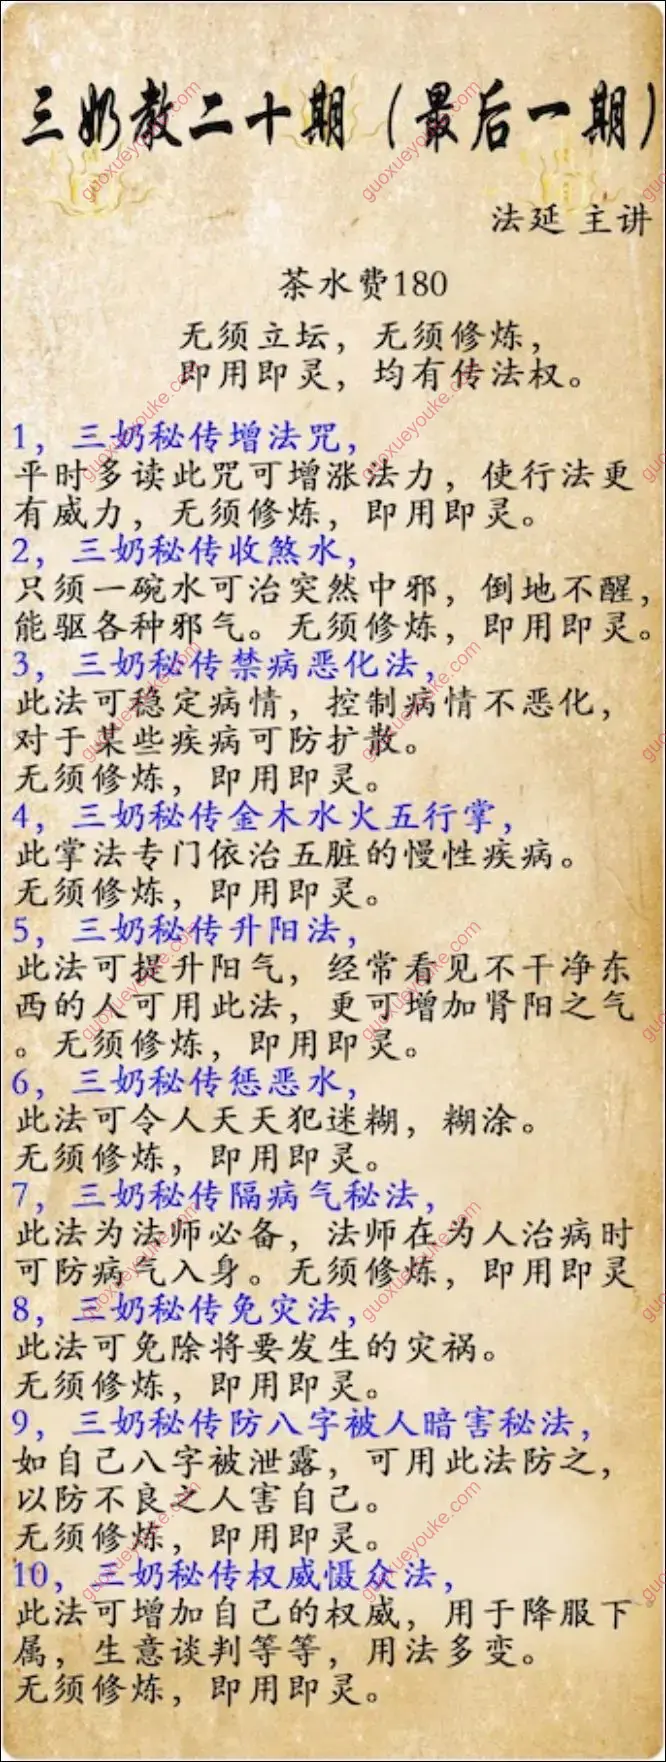 三奶教二十期（最后一期）
法延 主讲
茶水费180
无须立坛，无须修炼，
即用即灵，均有传法权。
1，三奶秘传增法咒，
平时多读此咒可增涨法力，使行法更
有威力，无须修炼，即用即灵。
2，三奶秘传收煞水，
只须一碗水可治突然中邪，倒地不醒，
能驱各种邪气。无须修炼，即用即灵。
3，三奶秘传禁病恶化法，
此法可稳定病情，控制病情不恶化，
对于某些疾病可防扩散。
无须修炼，即用即灵。
4，三奶秘传金木水火五行掌，
此掌法专门依治五脏的慢性疾病。
无须修炼，即用即灵。
5，三奶秘传升阳法，
此法可提升阳气，经常看见不干净东
西的人可用此法，更可增加肾阳之气
。无须修炼，即用即灵。
6，三奶秘传惩恶水，
此法可令人天天犯迷糊，糊涂。
无须修炼，即用即灵。
7，三奶秘传隔病气秘法，
此法为法师必备，法师在为人治病时
可防病气入身。无须修炼，即用即灵
8，三奶秘传免灾法，
此法可免除将要发生的灾祸。
无须修炼，即用即灵。
9，三奶秘传防八字被人暗害秘法，
如自己八字被泄露，可用此法防之，
以防不良之人害自己。
无须修炼，即用即灵。
10，三奶秘传权威慑众法，
此法可增加自己的权威，用于降服下
属，生意谈判等等，用法多变。
无须修炼，即用即灵。
guoxueyouke.com